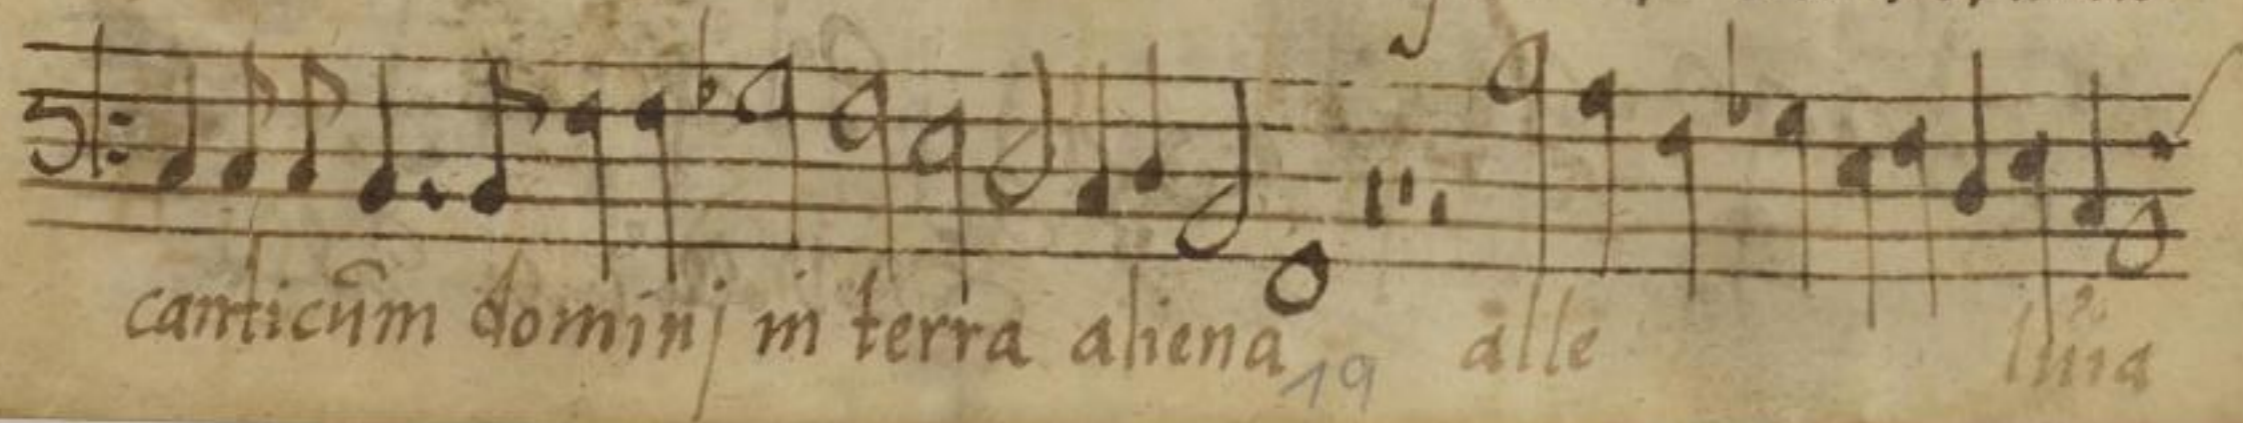 canticūm dominj in terra aliena alle luia
19